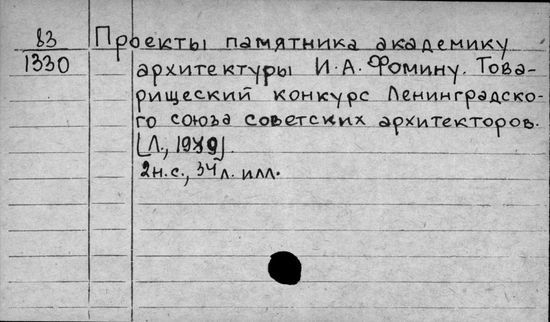 83
1330
Проекты памятника академику
архитектуры И. А. Фомину. Това-
рищеский конкурс Ленинградско-
го союза советских архитекторов.
[Л., 1939].
2 н. с., 34 л. илл.